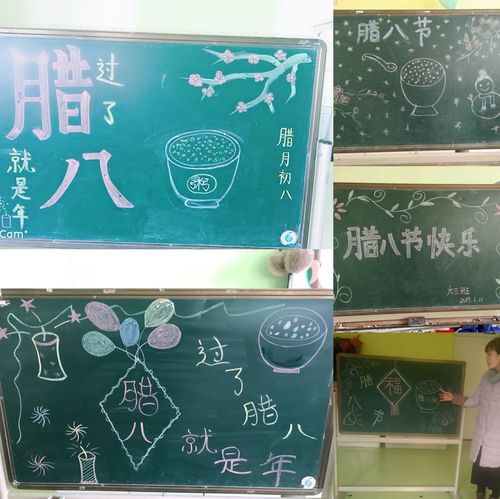 腊八
过了
就是年
粥
腊月初八
Cam
腊八节
腊八节快乐
大三班
2019.1.11
腊八
过了腊八
就是年
腊八节
福